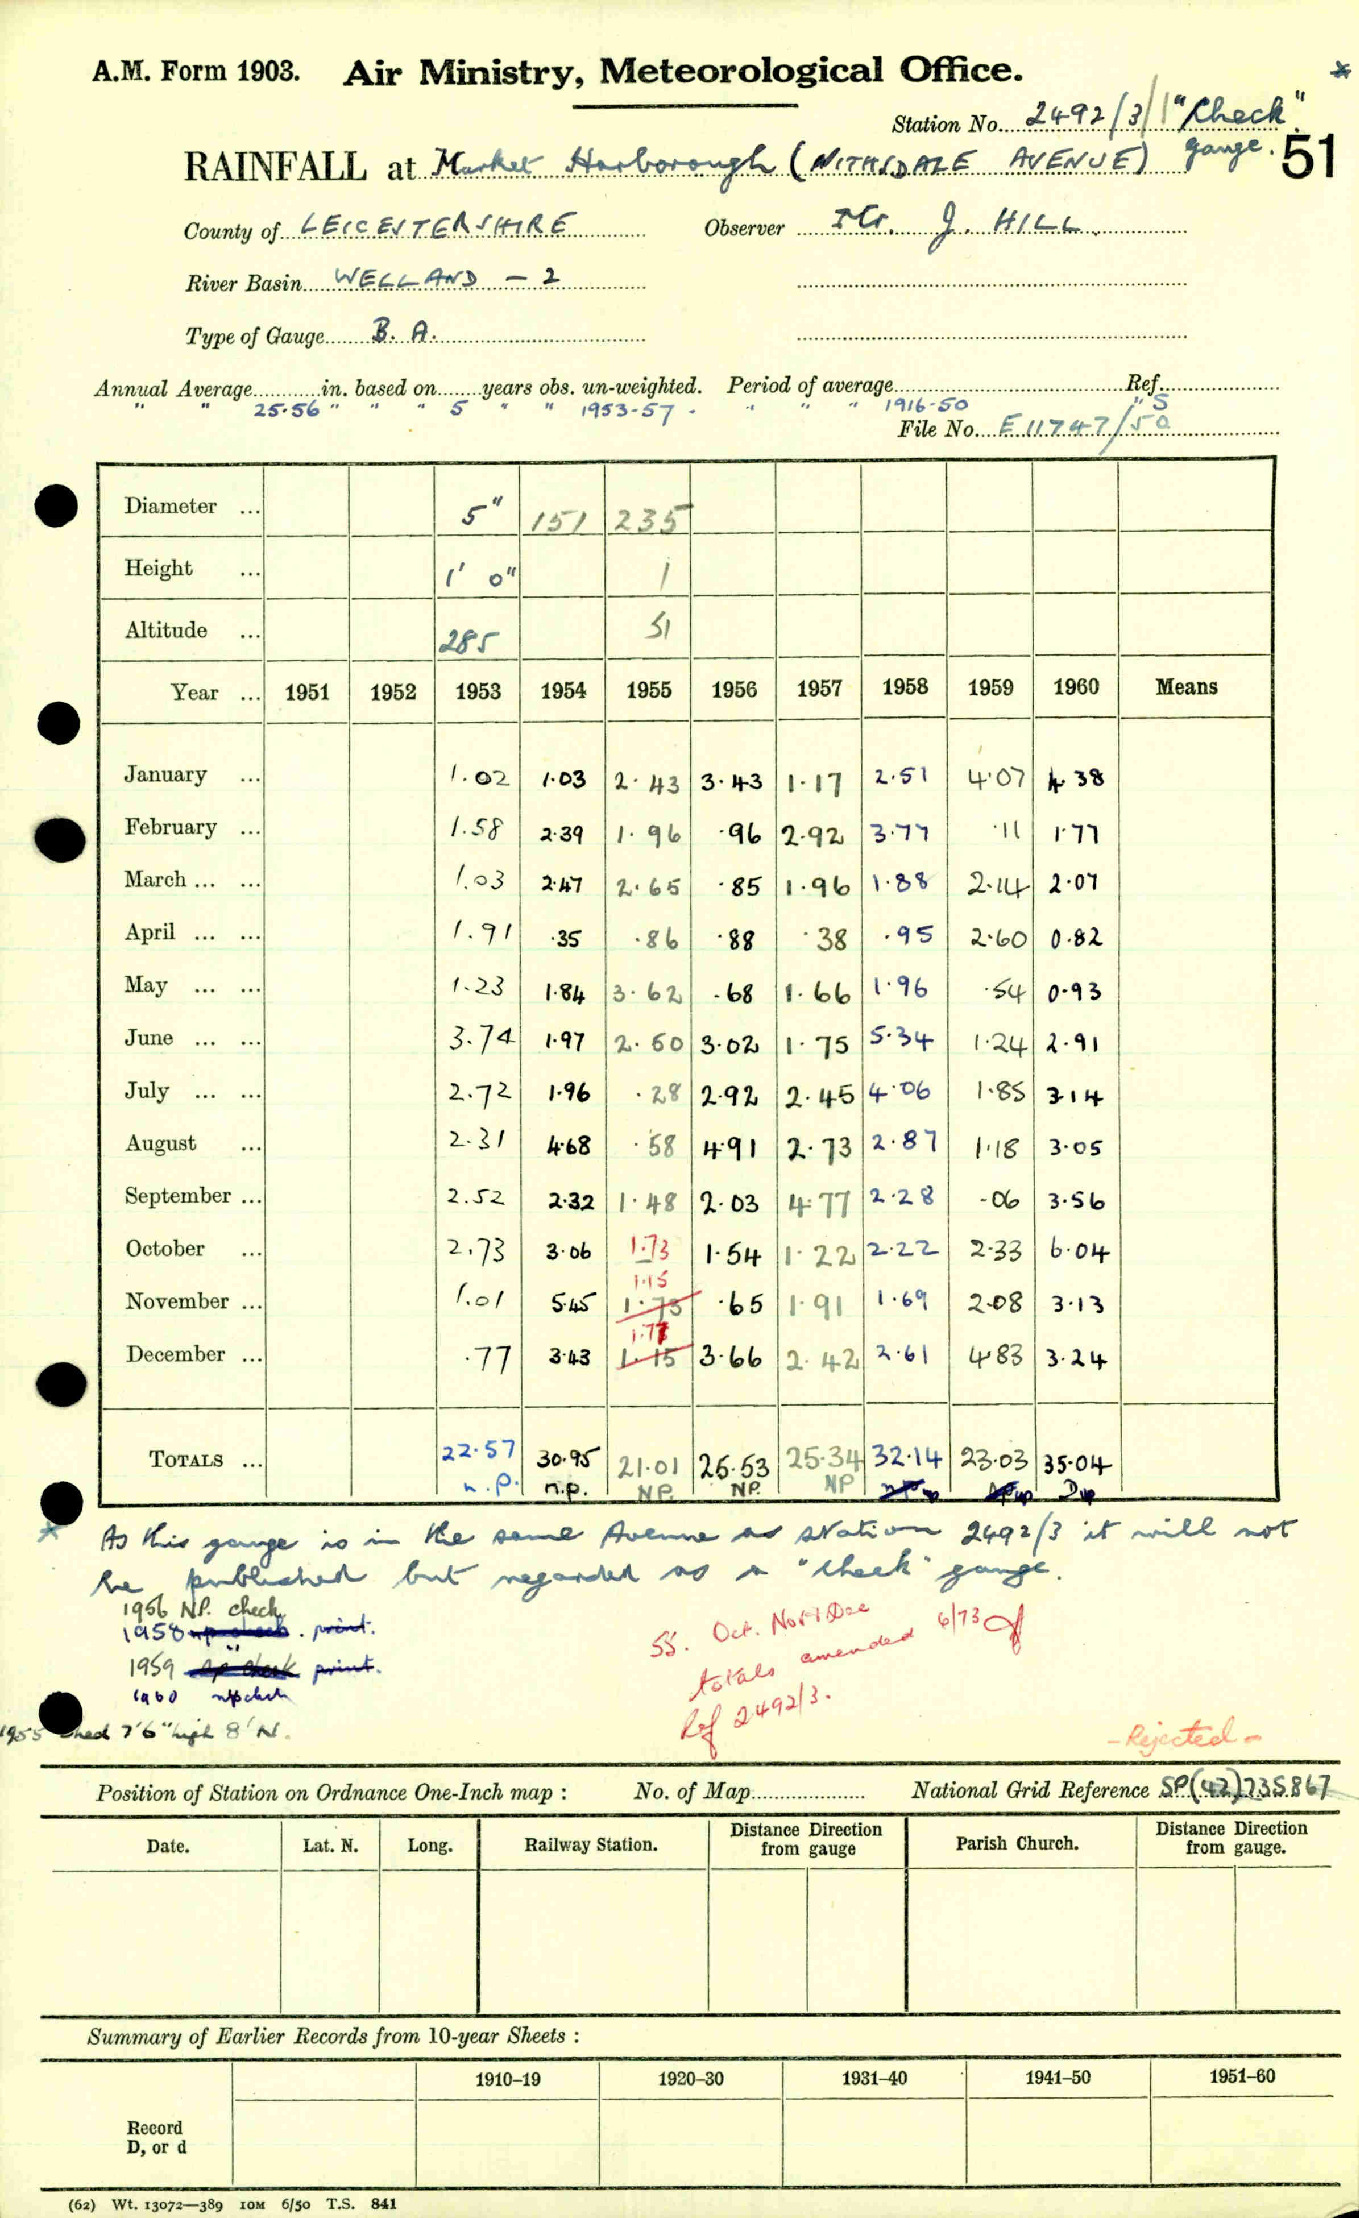 A.M. Form 1903. Air Ministry, Meteorological Office. *
Station No. 2492/3/1 "Check"
RAINFALL at Market Harborough (NITHSDALE AVENUE) gauge. 51
County of LEICESTERSHIRE Observer Mr. J. HILL.
River Basin WELLAND - 2
Type of Gauge B. A.
Annual Average in. based on years obs. un-weighted. Period of average Ref.
" " 25.56 " " " 5 " " 1953-57 . " " " 1916-50 " S
File No. E 11747/50
Diameter ... 5" 151 235
Height ... 1' 0" 1
Altitude ... 285 51
Year ... 1951 1952 1953 1954 1955 1956 1957 1958 1959 1960 Means
January ... 1.02 1.03 2.43 3.43 1.17 2.51 4.07 4.38
February ... 1.58 2.39 1.96 .96 2.92 3.77 .11 1.77
March ... ... 1.03 2.47 2.65 .85 1.96 1.88 2.14 2.07
April ... ... 1.91 .35 .86 .88 .38 .95 2.60 0.82
May ... ... 1.23 1.84 3.62 .68 1.66 1.96 .54 0.93
June ... ... 3.74 1.97 2.50 3.02 1.75 5.34 1.24 2.91
July ... ... 2.72 1.96 .28 2.92 2.45 4.06 1.85 3.14
August ... 2.31 4.68 .58 4.91 2.73 2.87 1.18 3.05
September ... 2.52 2.32 1.48 2.03 4.77 2.28 .06 3.56
October ... 2.73 3.06 1.73 1.54 1.22 2.22 2.33 6.04
1.15
November ... 1.01 5.45 1.73 .65 1.91 1.69 2.08 3.13
1.77
December ... .77 3.43 1.15 3.66 2.42 2.61 4.83 3.24
TOTALS ... 22.57 30.95 21.01 25.53 25.34 32.14 23.03 35.04
n.p. n.p. NP. NP. NP
* As this gauge is in the same Avenue as station 2492/3 it will not
be published but regarded as a "check" gauge.
1956 NP. check
1958 np check . print.
1959 np check print.
1960 np check
1955 shed 7'6" high 8' N.
55. Oct. Nov & Dec
totals amended 6/73
Ref 2492/3.
- Rejected -
Position of Station on Ordnance One-Inch map : No. of Map National Grid Reference SP(42)735867
Date. Lat. N. Long. Railway Station. Distance from Direction gauge Parish Church. Distance from Direction gauge.
Summary of Earlier Records from 10-year Sheets :
1910–19 1920–30 1931–40 1941–50 1951–60
Record
D, or d
(62) Wt. 13072—389 10M 6/50 T.S. 841